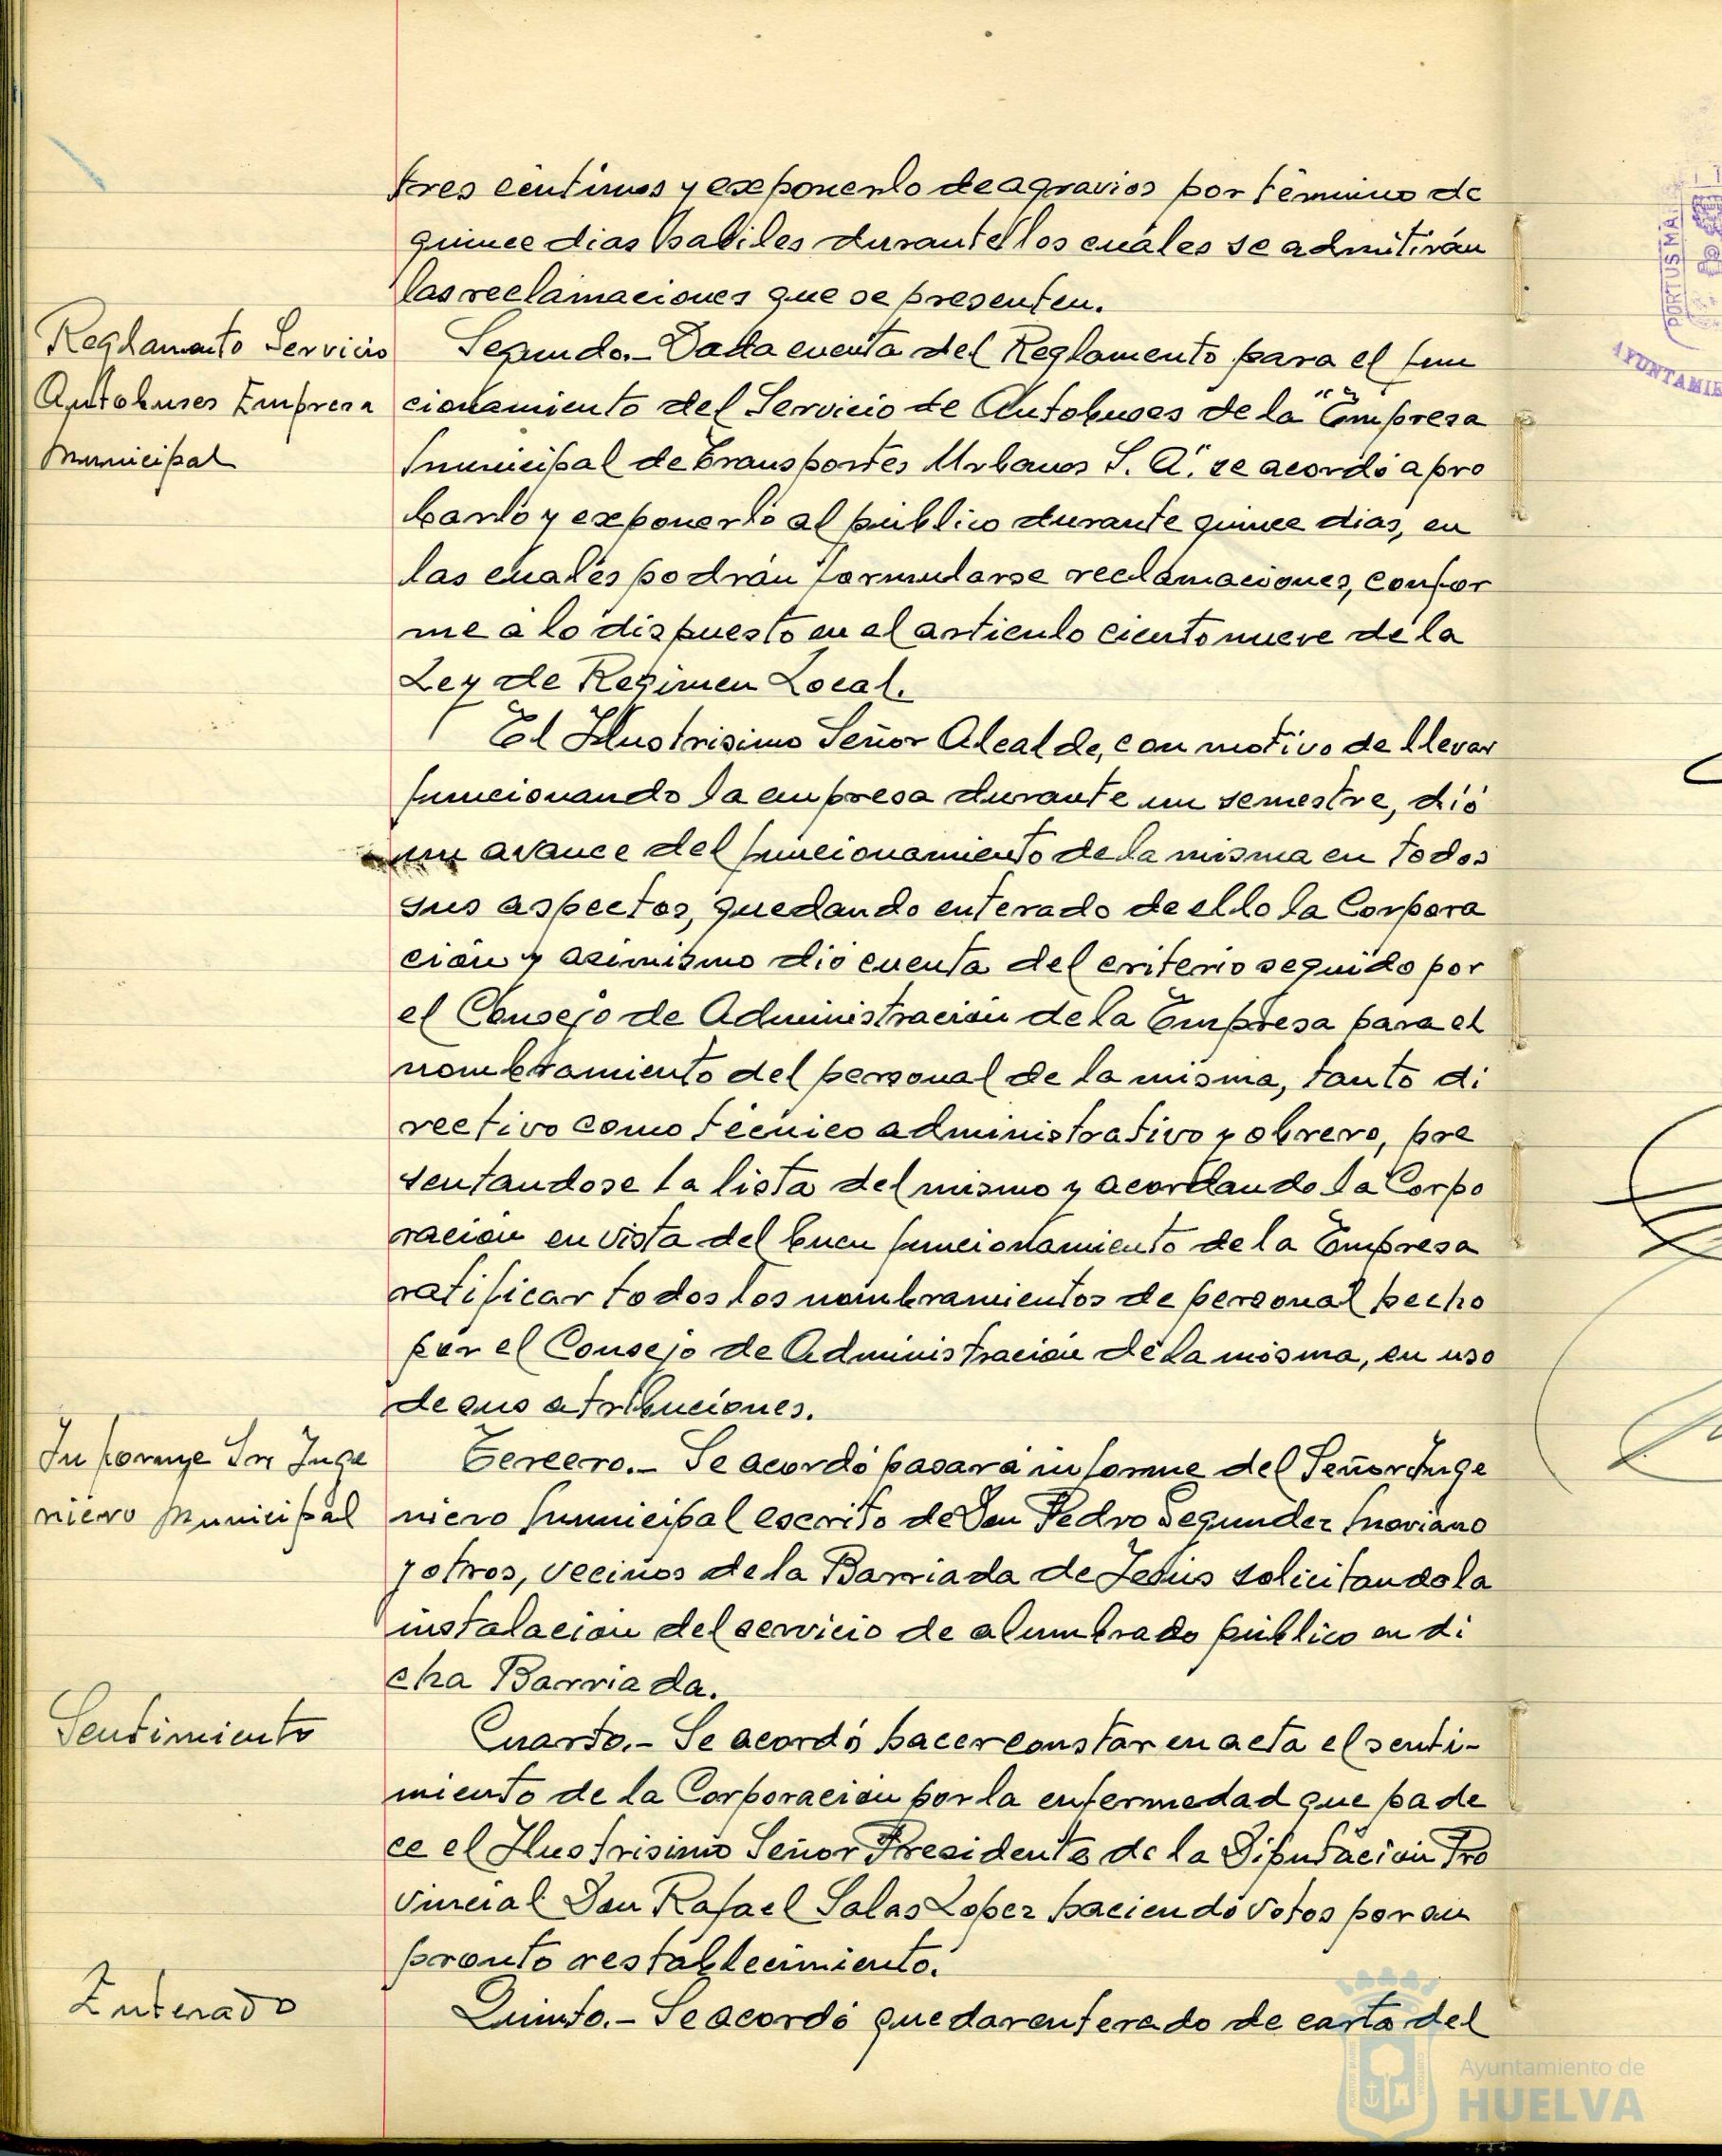 tres centimos y exponerlo de agravios por término de
quince dias habiles durante los cuáles se admitirán
las reclamaciones que se presenten.
Reglamento Servicio
Autobuses Empresa
Municipal
Segundo.- Dada cuenta del Reglamento para el fun
cionamiento del Servicio de Autobuses de la "Empresa
Municipal de Transportes Urbanos S. A". se acordó apro
barlo y exponerlo al público durante quince dias, en
las cuales podrán formularse reclamaciones, confor
me a lo dispuesto en el articulo ciento nueve de la
Ley de Regimen Local.
El Ilustrisimo Señor Alcalde, con motivo de llevar
funcionando la empresa durante un semestre, dió
un avance del funcionamiento de la misma en todos
sus aspectos, quedando enterado de ello la Corpora
ción y asimismo dió cuenta del criterio seguido por
el Consejo de Administración de la Empresa para el
nombramiento del personal de la misma, tanto di
rectivo como técnico administrativo y obrero, pre
sentandose la lista del mismo y acordando la Corpo
ración en vista del buen funcionamiento de la Empresa
ratificar todos los nombramientos de personal hecho
por el Consejo de Administración de la misma, en uso
de sus atribuciones.
Informe Sr. Inge
niero Municipal
Tercero.- Se acordó pasar a informe del Señor Inge
niero Municipal escrito de Don Pedro Segunder Moriano
y otros, vecinos de la Barriada de Jesús solicitando la
instalación del servicio de alumbrado público en di
cha Barriada.
Sentimiento
Cuarto.- Se acordó hacer constar en acta el senti-
miento de la Corporación por la enfermedad que pade
ce el Ilustrisimo Señor Presidente de la Diputación Pro
vincial Don Rafael Salas Lopez haciendo votos por su
pronto restablecimiento.
Enterado
Quinto.- Se acordó quedar enterado de carta del
PORTUS MA
AYUNTAMIE
Ayuntamiento de
HUELVA